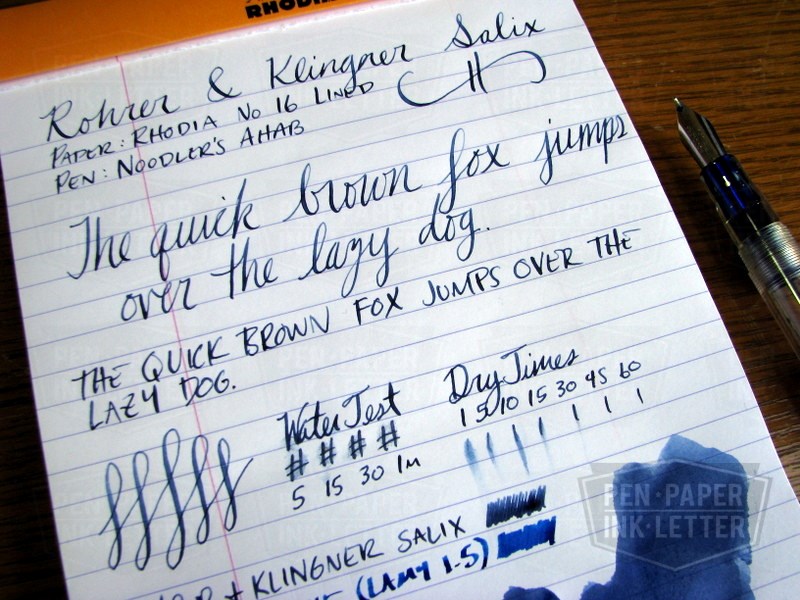 RHODIA
Rohrer & Klingner Salix
PAPER: RHODIA No 16 LINED
PEN: NOODLER'S AHAB
The quick brown fox jumps
over the lazy dog.
THE QUICK BROWN FOX JUMPS OVER THE
LAZY DOG.
Water Test
# # # #
5 15 30 1M
Dry Times
1 5 10 15 30 45 60
+ KLINGNER SALIX
(LAMY 1.5)
PEN·PAPER
INK·LETTER